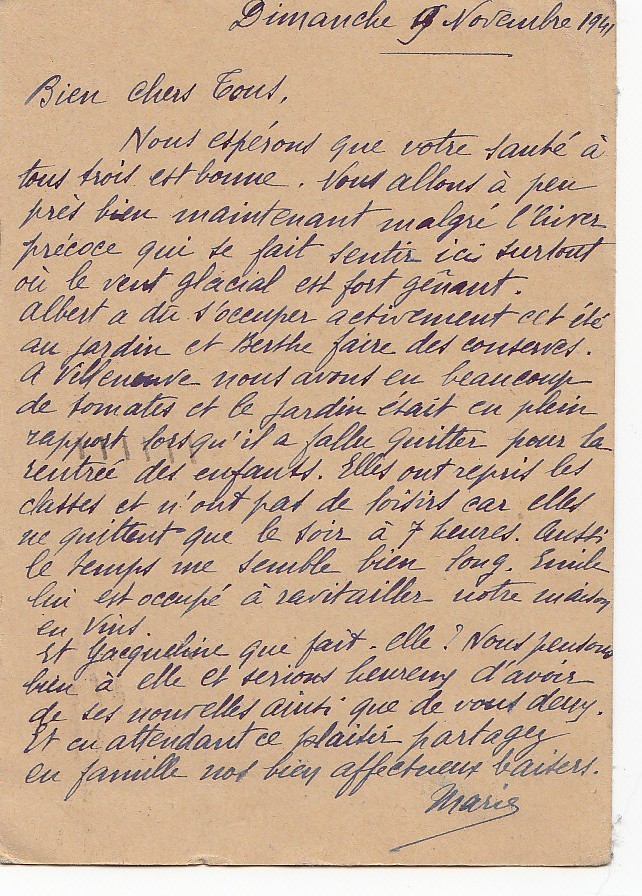 Dimanche 9 Novembre 1941
Bien chers Tous,
Nous espérons que votre santé à
tous trois est bonne. Nous allons à peu
près bien maintenant malgré l'hiver
précoce qui se fait sentir ici surtout
où le vent glacial est fort gênant.
Albert a du s'occuper activement cet été
au jardin et Berthe faire des conserves.
A Villeneuve nous avons eu beaucoup
de tomates et le jardin était en plein
rapport lorsqu'il a fallu quitter pour la
rentrée des enfants. Elles ont repris les
classes et n'ont pas de loisirs car elles
ne quittent que le soir à 7 heures. Aussi
le temps me semble bien long. Emile
lui est occupé à ravitailler notre maison
en vins.
Et Jacqueline que fait-elle ? Nous pensons
bien à elle et serions heureux d'avoir
de ses nouvelles ainsi que de vous deux.
Et en attendant ce plaisir partagez
en famille nos bien affectueux baisers.
Marie